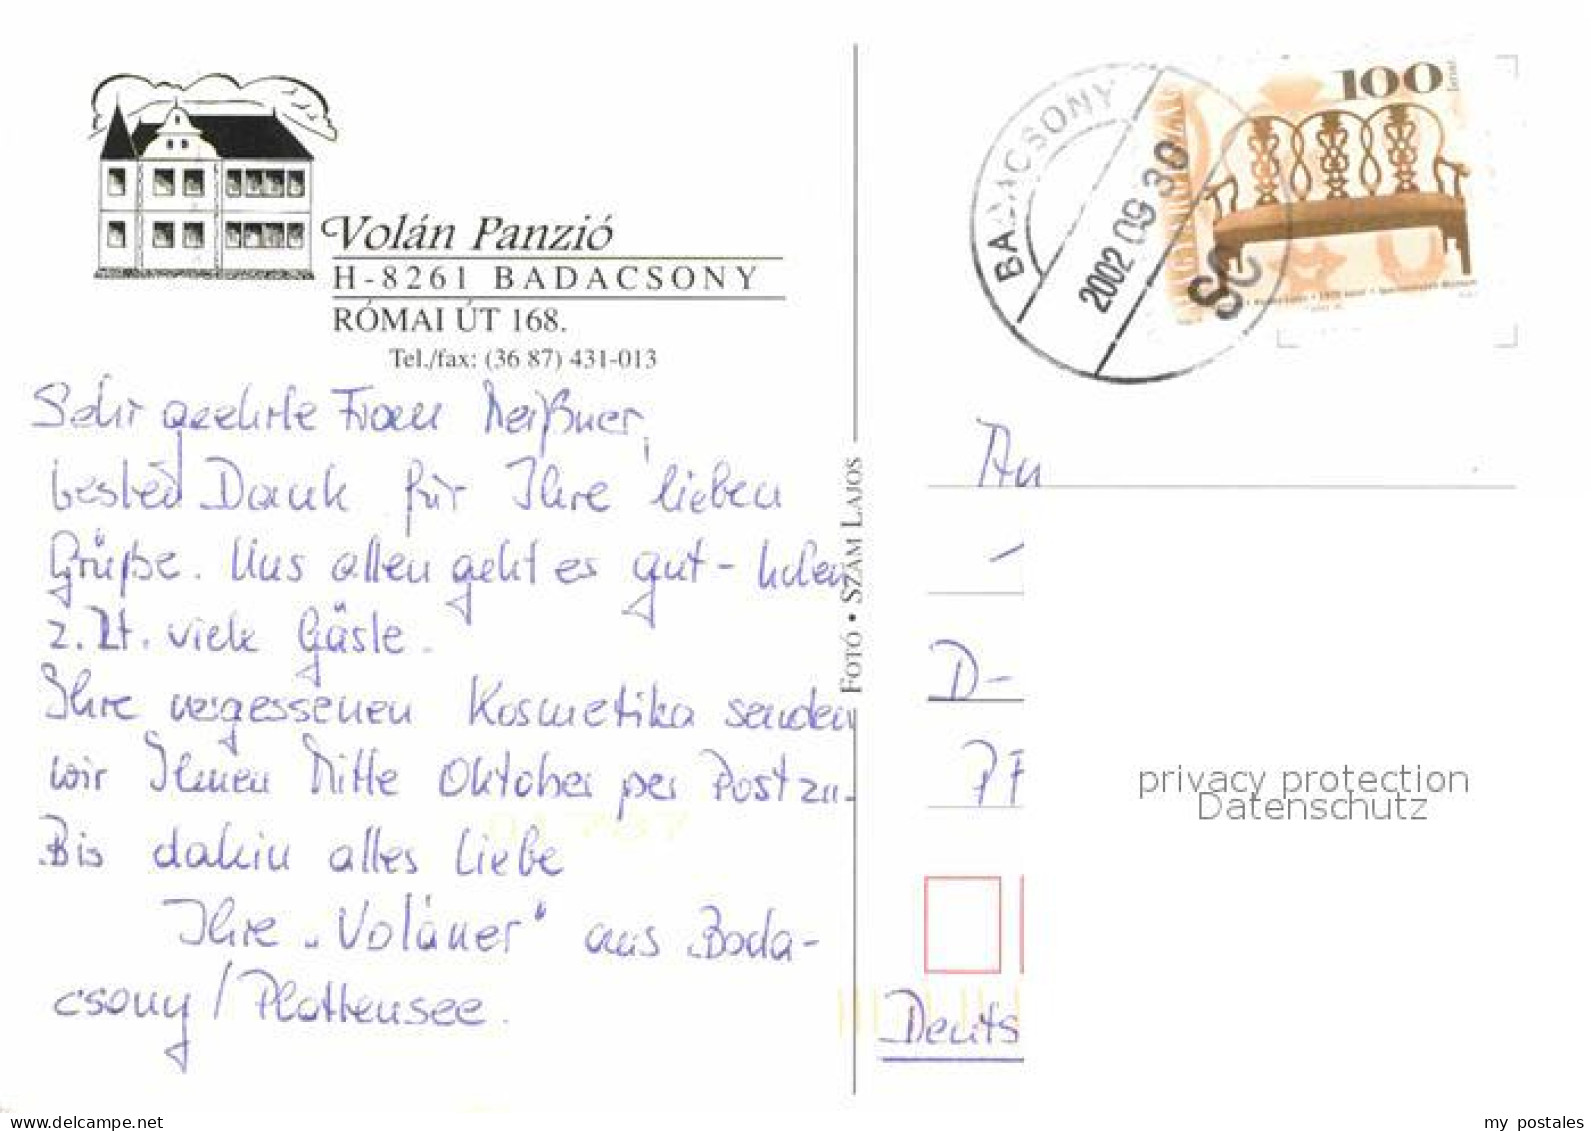 Volán Panzió
H-8261 BADACSONY
RÓMAI ÚT 168.
Tel./fax: (36 87) 431-013
Sehr geehrte Frau Meißner,
besten Dank für Ihre lieben
Grüße. Uns allen geht es gut - haben
z. Zt. viele Gäste.
Ihre vergessenen Kosmetika senden
wir Ihnen Mitte Oktober per Post zu.
Bis dahin alles Liebe
Ihre „Voláner“ aus Bada-
csony / Plattensee.
FOTÓ • SZÁM LAJOS
BADACSONY
2002 09 30
100
An
D-
PF
Deuts
privacy protection
Datenschutz
my postales